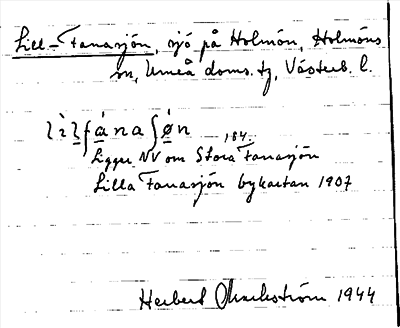 Lill-Fanasjön, sjö på Holmön, Holmöns
sn, Umeå doms. tg, Västerb. l.
184.
Ligger NV om Stora Fanasjön
Lilla Fanasjön bykartan 1907
Herbert Markström 1944